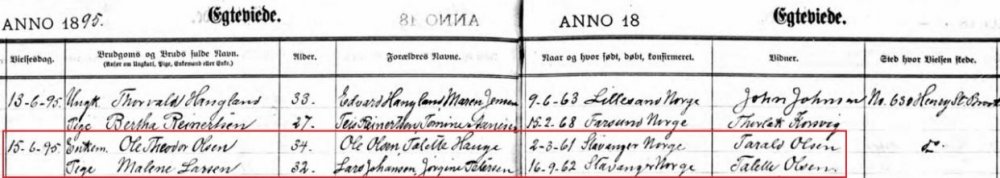 ANNO 1895. Egteviede. ANNO 18 ANNO 18 Egteviede.
Vielsesdag. Brudgoms og Bruds fulde Navn. Alder. Forældres Navne. Naar og hvor født, døbt, konfirmeret. Vidner. Sted hvor Vielsen skede.
(Anfør om Ungkarl, Pige, Enkemand eller Enke.)
13-6-95. Ungk. Thorvald Hangland 33. Edvard Hangland, Maren Jensen 9-6-63 Lillesand Norge John Johnsen No. 630 Henry St.
Pige Bertha Reinertsen 27. Reinertsen Tomine 15-2-68 Farsund Norge
15-6-95 Enkem. Ole Theodor Olsen 34. Ole Olsen, Talette Hauge 2-3-61 Stavanger Norge Tarald Olsen do.
Pige Malene Larsen 32. Lars Johansen, Jörgine Petersen 16-9-62 Stavanger Norge Talette Olsen